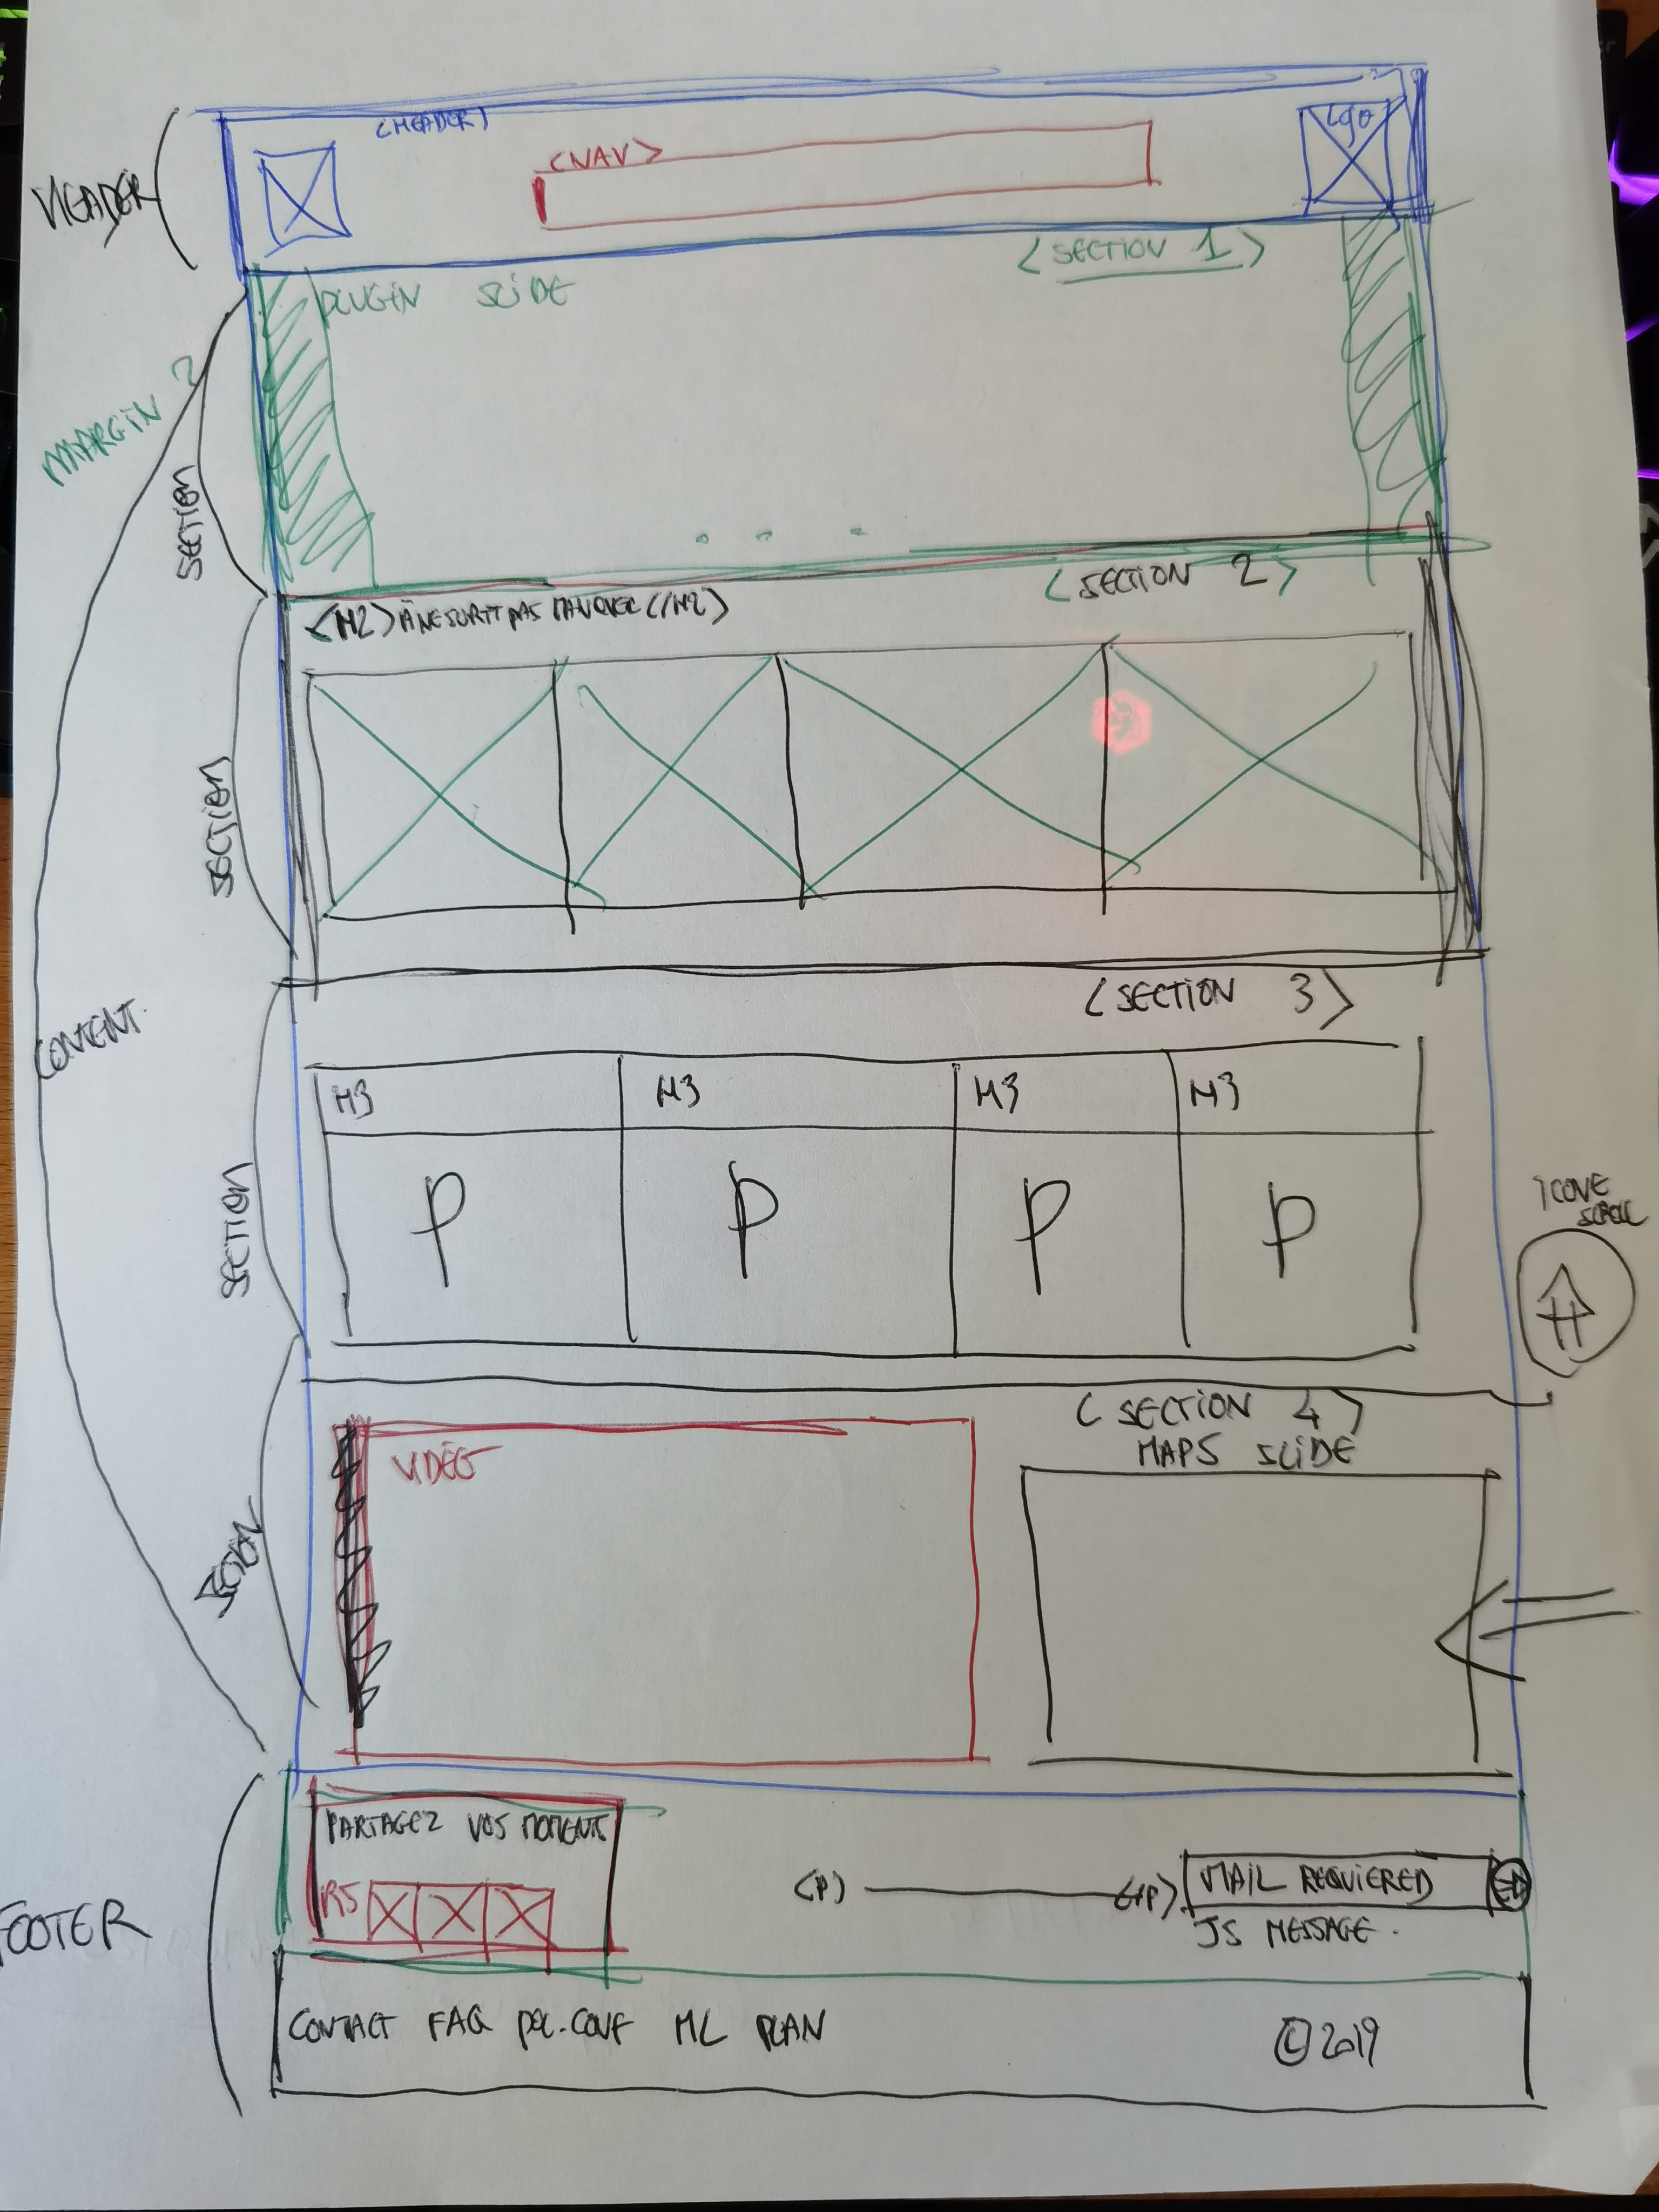 HEADER
<HEADER>
<NAV>
LOGO
<SECTION 1>
PLUGIN SLIDE
MARGIN ?
SECTION
<SECTION 2>
<H2> À NE SURTT PAS MANQUER </H2>
SECTION
CONTENT
<SECTION 3>
H3 H3 H3 H3
P P P P
SECTION
ICONE
SCROLL
<SECTION 4>
MAPS SLIDE
VIDÉO
SECTION
PARTAGEZ VOS MOMENTS
RS
<P> </P>
MAIL REQUIERED
JS MESSAGE.
FOOTER
CONTACT FAQ POL.CONF ML PLAN
©2019